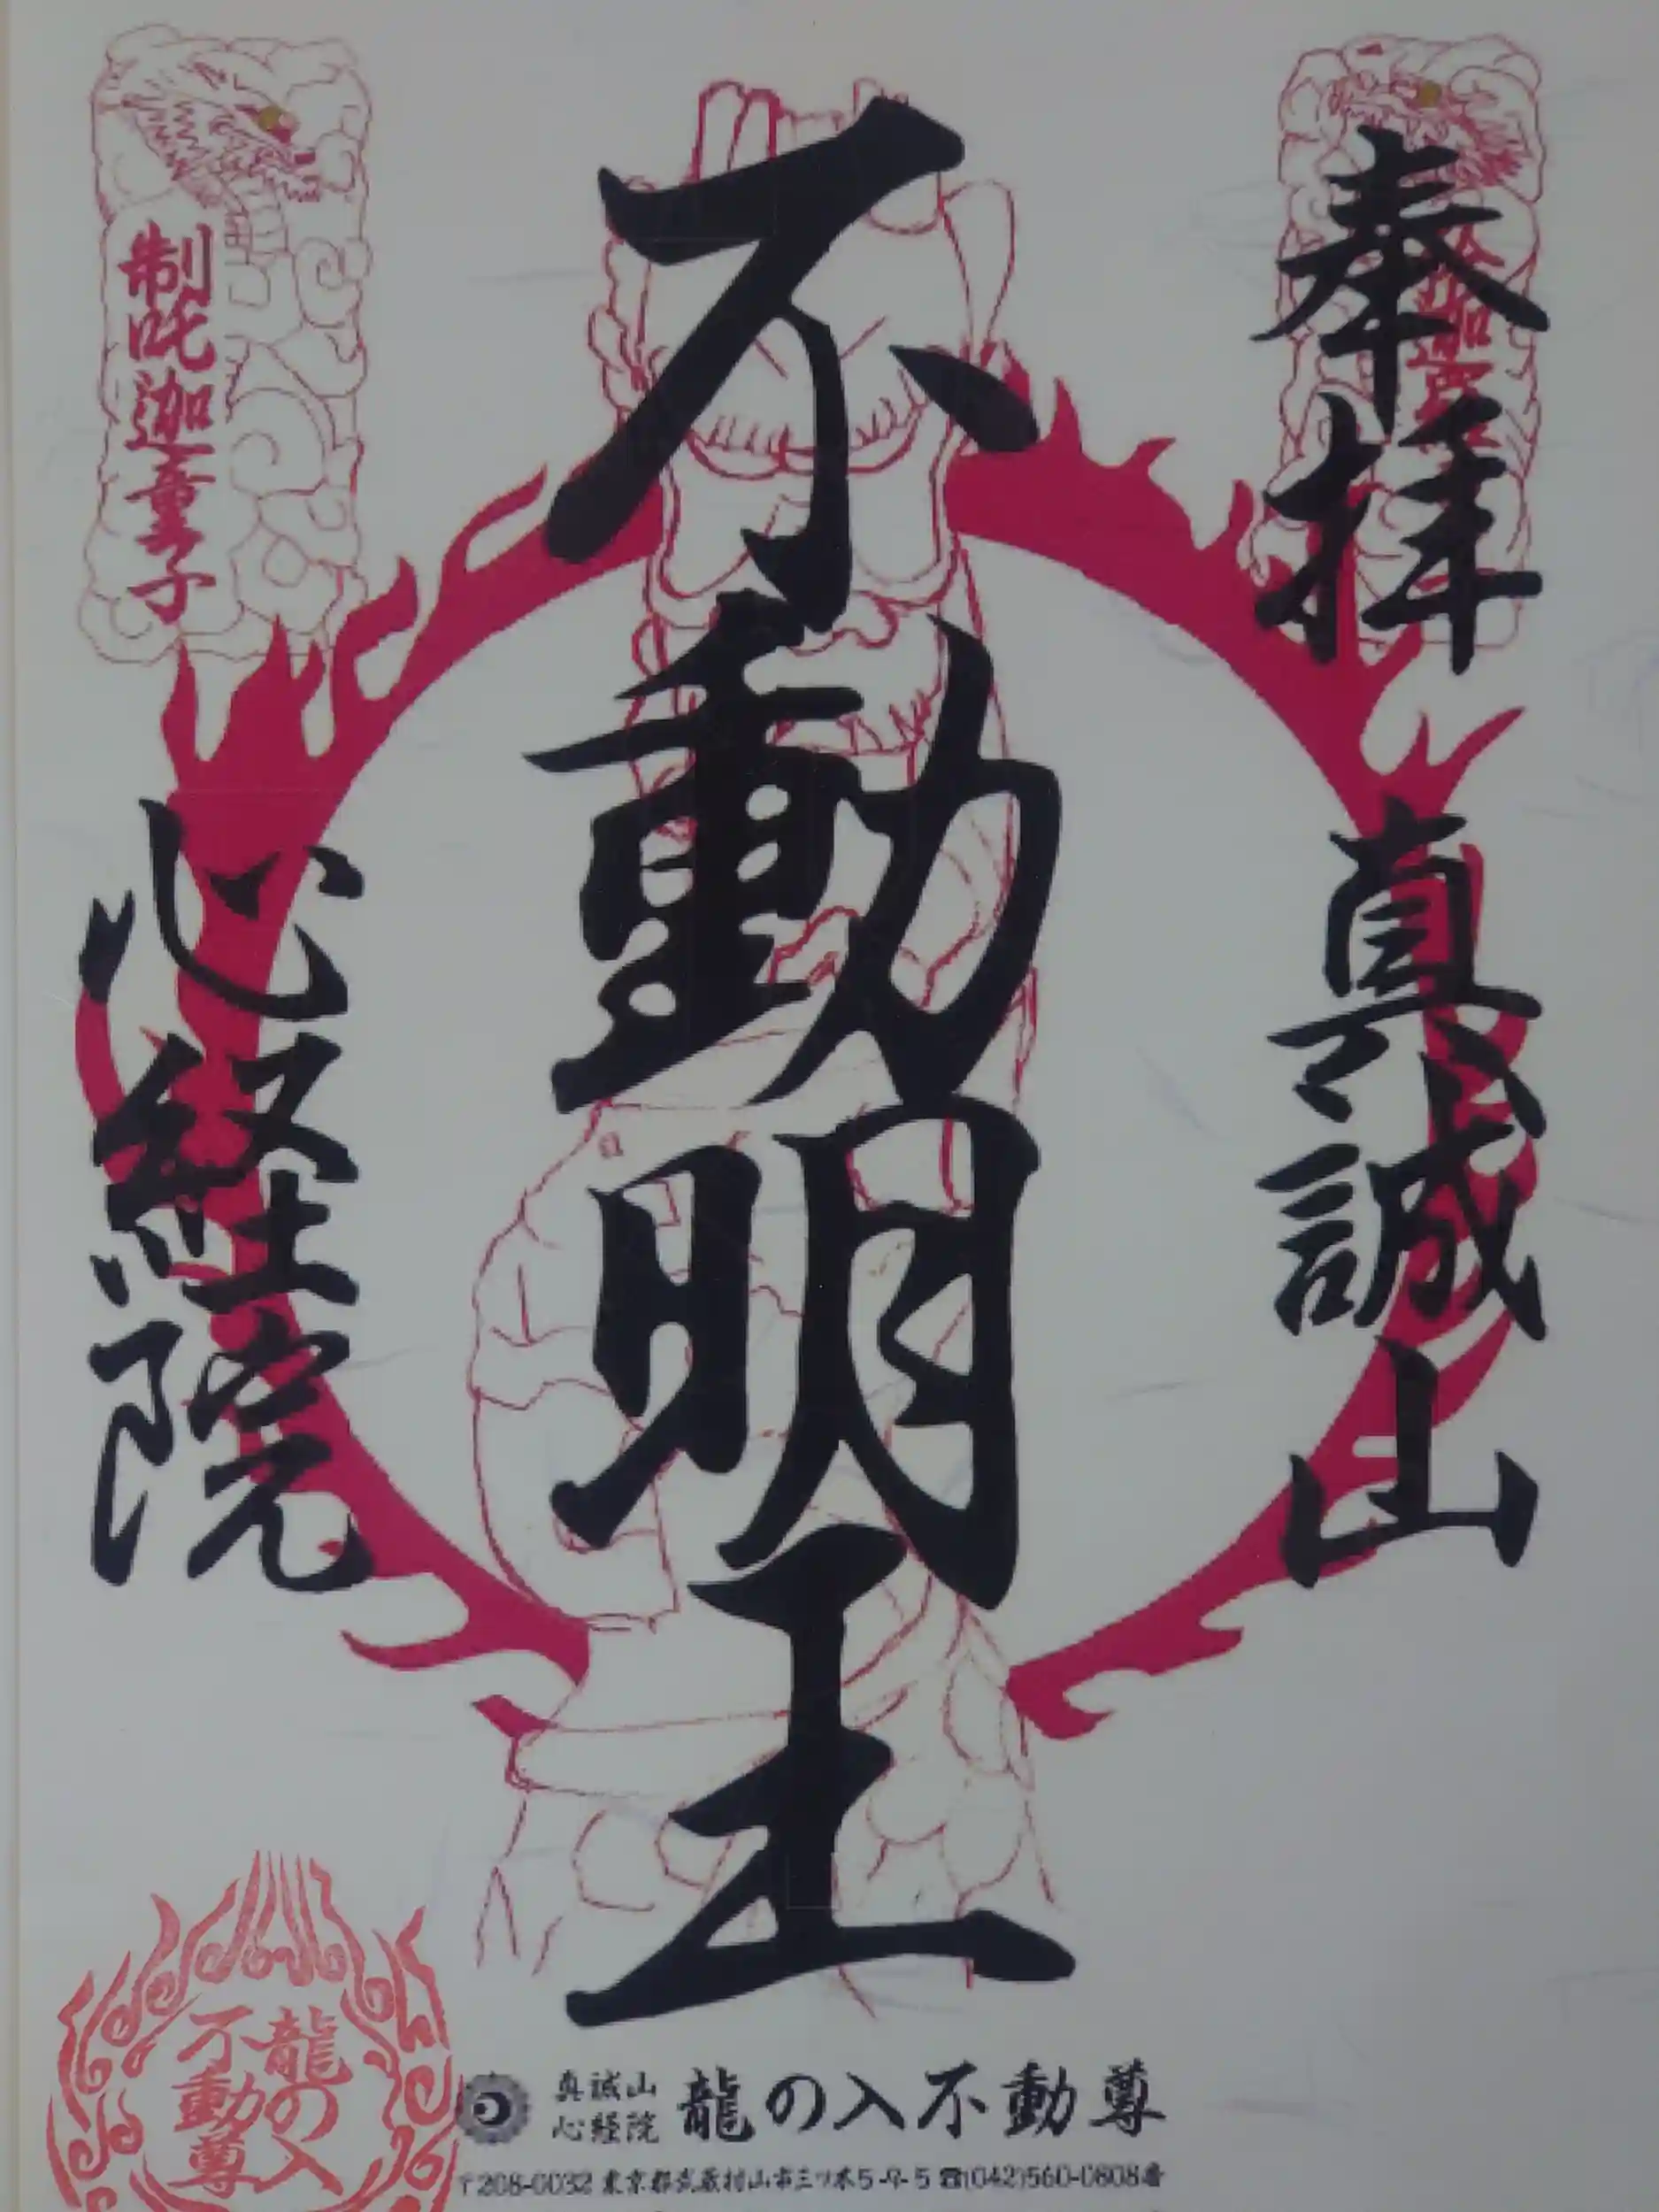 奉拝
真誠山
不動明王
制吒迦童子
心経院
龍の入
不動尊
真誠山
心経院
龍の入不動尊
〒208-0032 東京都武蔵村山市三ツ木5-9-5 ☎(042)560-0808番